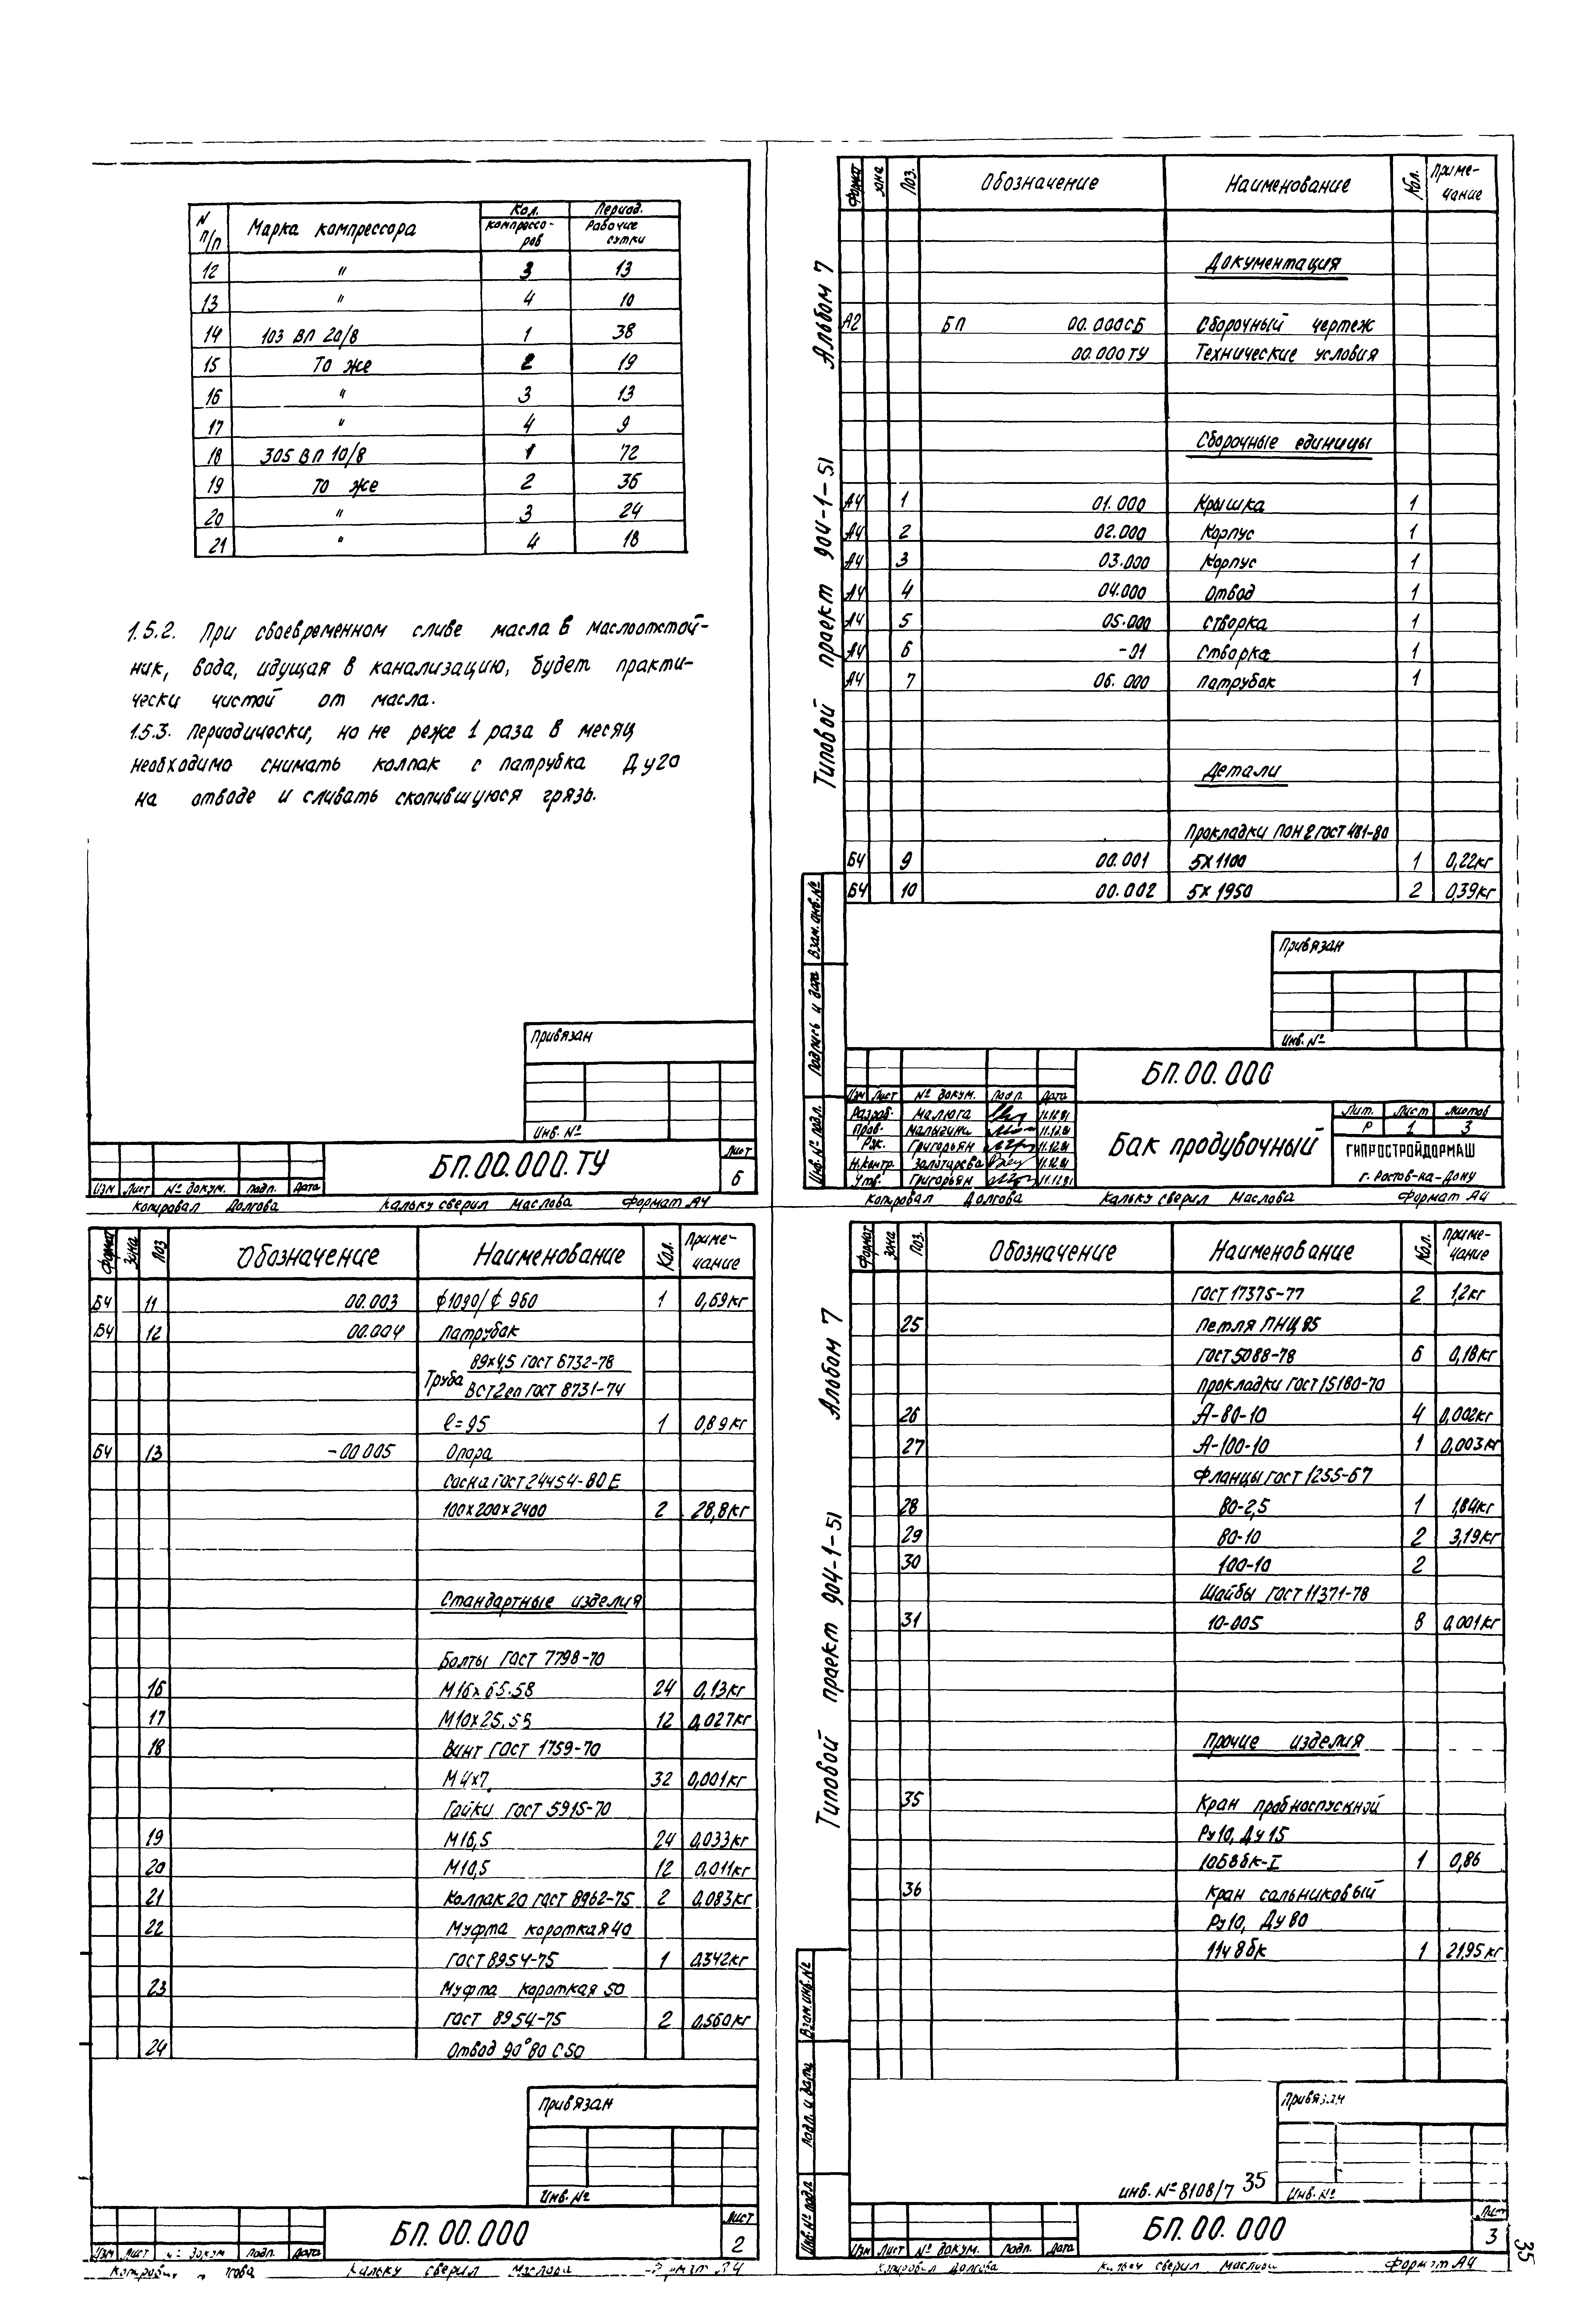 N п/п Марка компрессора Кол. компрессоров Период. Рабочие сутки
12 " 3 13
13 " 4 10
14 103 ВП 20/8 1 38
15 То же 2 19
16 " 3 13
17 " 4 9
18 305 ВП 10/8 1 72
19 То же 2 36
20 " 3 24
21 " 4 18
1.5.2. При своевременном сливе масла в маслоотстой-
ник, вода, идущая в канализацию, будет практи-
чески чистой от масла.
1.5.3. Периодически, но не реже 1 раза в месяц
необходимо снимать колпак с патрубка Ду20
на отводе и сливать скопившуюся грязь.
Привязан
Инв. №
БП.00.000.ТУ
Лист
6
Изм Лист № докум. Подп. Дата
Копировал Долгова Кальку сверил Маслова Формат А4
Альбом 7
Типовой проект 904-1-51
Формат Зона Поз. Обозначение Наименование Кол. Приме-чание
Документация
А2 БП 00.000СБ Сборочный чертеж
00.000ТУ Технические условия
Сборочные единицы
А4 1 01.000 Крышка 1
А4 2 02.000 Корпус 1
А4 3 03.000 Корпус 1
А4 4 04.000 Отвод 1
А4 5 05.000 Створка 1
А4 6 -01 Створка 1
А4 7 06.000 Патрубок 1
Детали
Прокладки ПОН 2 ГОСТ 481-80
БЧ 9 00.001 5х1100 1 0,22кг
БЧ 10 00.002 5х1950 2 0,39кг
Взам. инв. №
Подпись и дата
Инв. № подл.
Привязан
Инв. №
БП.00.000
Изм Лист № докум. Подп. Дата
Разраб. Малюга 11.12.81
Пров. Малыгина 11.12.81
Рук. Григорьян 11.12.81
Н.контр. 11.12.81
Утв. Григорьян 11.12.81
Бак продувочный
Лит. Лист Листов
Р 1 3
ГИПРОСТРОЙДОРМАШ
г. Ростов-на-Дону
Копировал Долгова Кальку сверил Маслова Формат А4
Формат Зона Поз Обозначение Наименование Кол. Приме-чание
БЧ 11 00.003 ¢1090/¢ 960 1 0,69кг
БЧ 12 00.004 Патрубок
Труба 89х4,5 ГОСТ 6732-78
ВСТ2сп ГОСТ 8731-74
ℓ=95 1 0,89кг
БЧ 13 -00.005 Опора
Сосна ГОСТ 24454-80Е
100х200х2400 2 28,8кг
Стандартные изделия
Болты ГОСТ 7798-70
16 М16х65.58 24 0,13кг
17 М10х25.58 12 0,027кг
18 Винт ГОСТ 1759-70
М4х7 32 0,001кг
Гайки ГОСТ 5915-70
19 М16,5 24 0,033кг
20 М10,5 12 0,011кг
21 Колпак 20 ГОСТ 8962-75 2 0,083кг
22 Муфта короткая 40
ГОСТ 8954-75 1 0,342кг
23 Муфта короткая 50
ГОСТ 8954-75 2 0,560кг
24 Отвод 90°80 С50
Привязан
Инв. №
БП.00.000
Лист
2
Изм Лист № докум Подп. Дата
Кальку сверил Маслова Формат А4
Альбом 7
Типовой проект 904-1-51
Формат Зона Поз. Обозначение Наименование Кол. Приме-чание
ГОСТ 17375-77 2 1,2кг
25 Петля ПНЦ 85
ГОСТ 5088-78 6 0,18кг
Прокладки ГОСТ 15180-70
26 А-80-10 4 0,002кг
27 А-100-10 1 0,003кг
Фланцы ГОСТ 1255-67
28 80-2,5 1 1,84кг
29 80-10 2 3,19кг
30 100-10 2
Шайбы ГОСТ 11371-78
31 10-005 8 0,001кг
Прочие изделия
35 Кран пробноспускной
Ру10, Ду15
10Б8бк-I 1 0,86
36 Кран сальниковый
Ру10, Ду80
11ч8бк 1 21,95кг
Взам. инв. №
Подп. и дата
Инв. № подл
Привязан
Инв. №
инв. № 8108/7 35
БП.00.000
Лист
3
Изм Лист № докум. Подп. Дата
Копировал Долгова Кальку сверил Маслова Формат А4
35